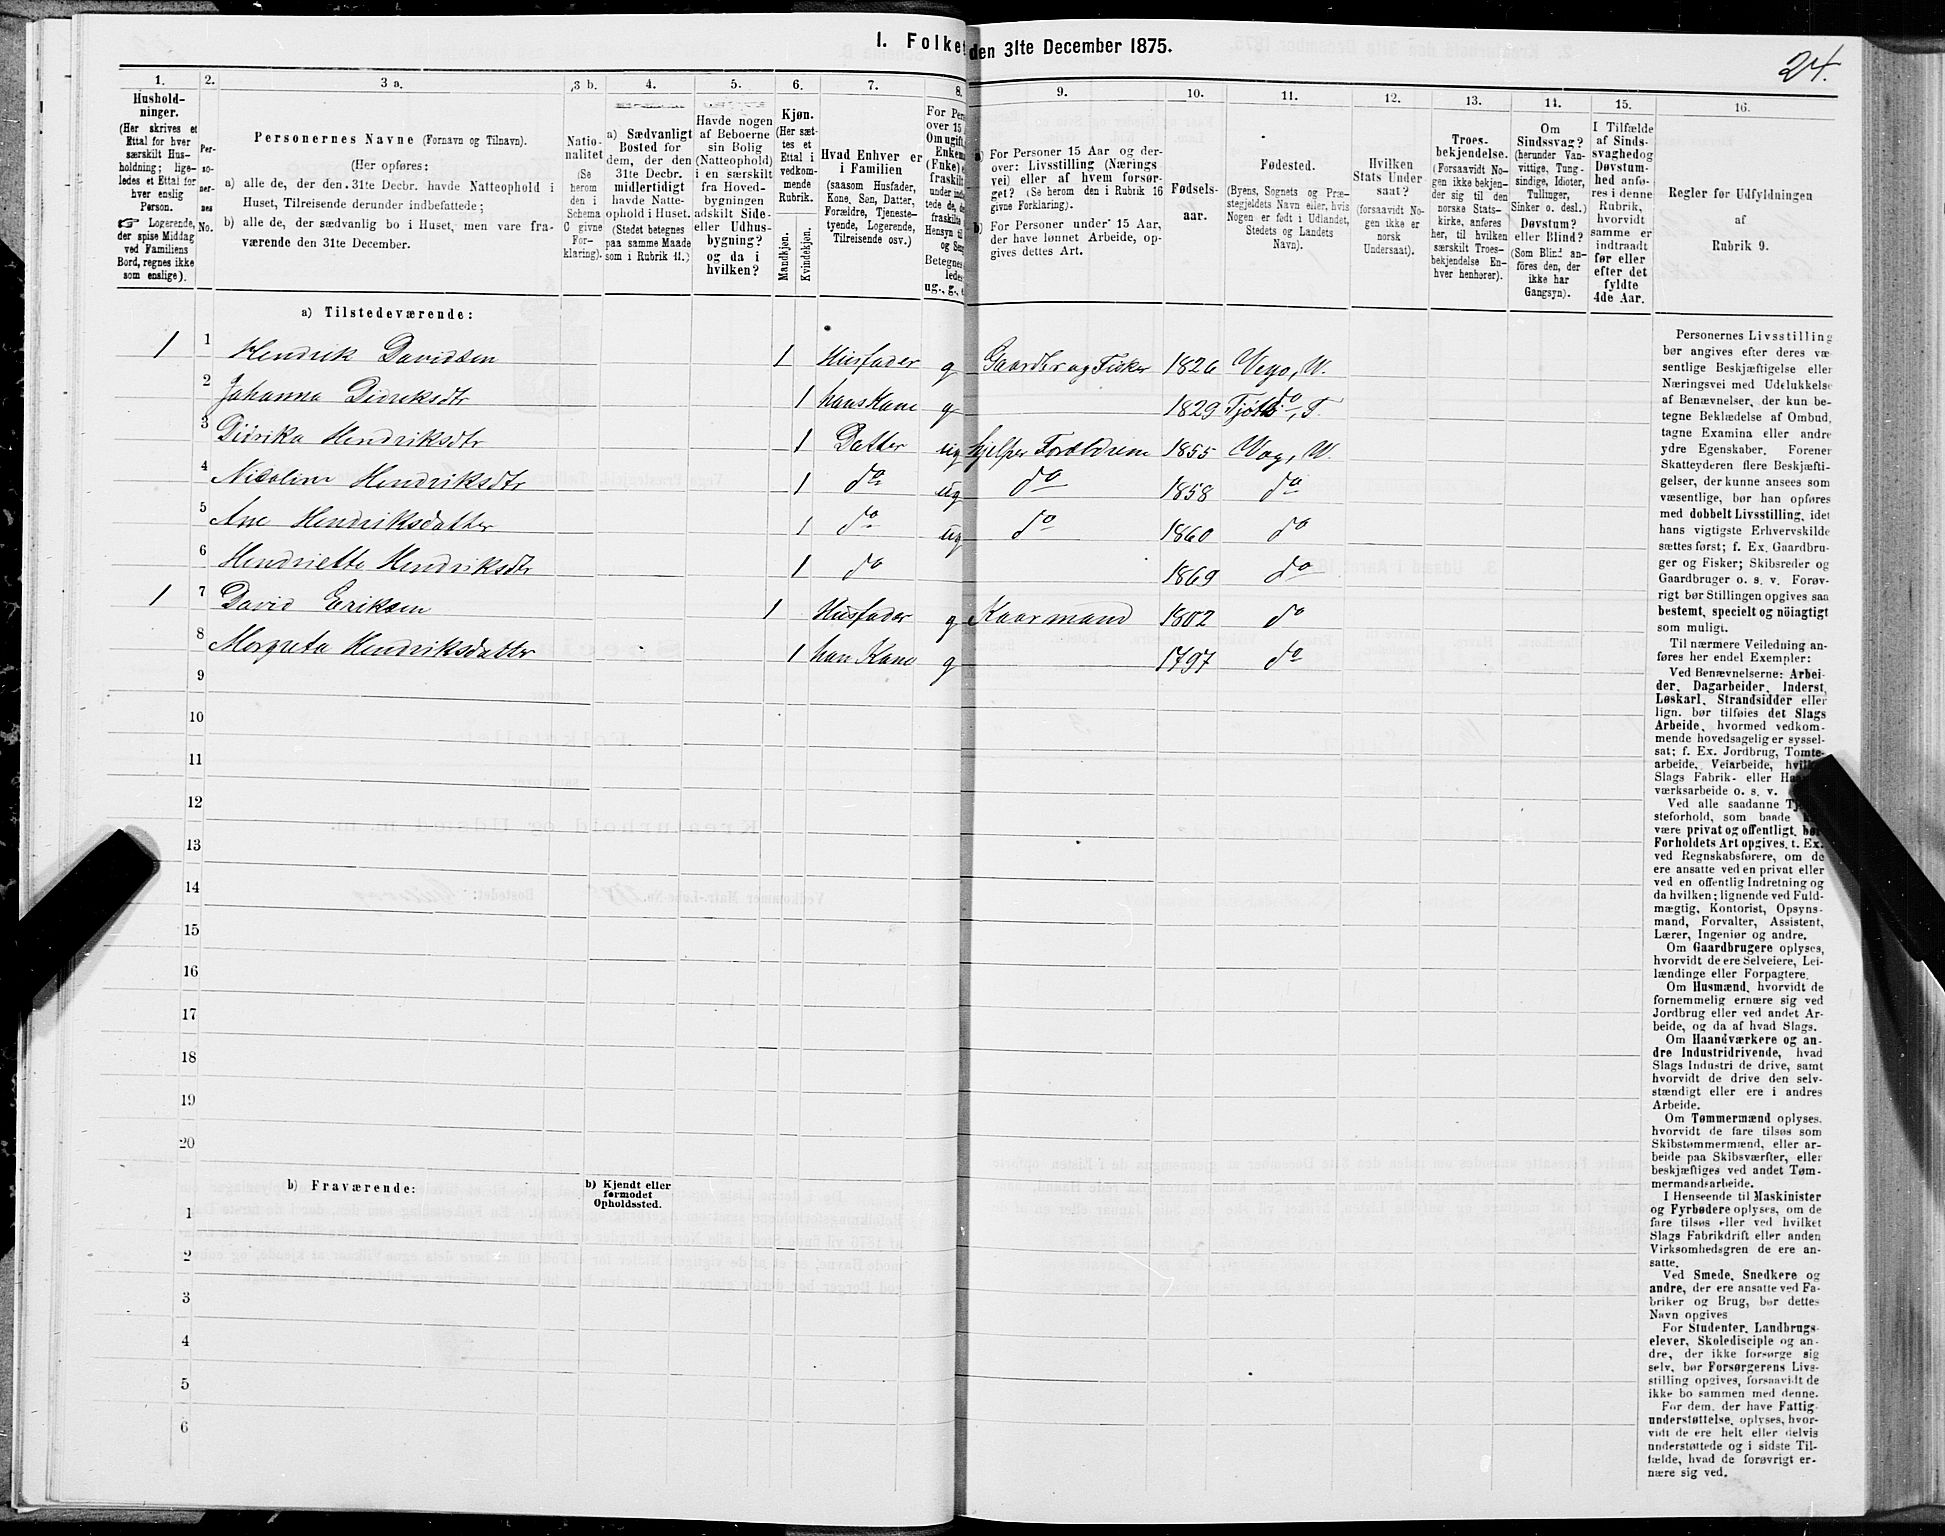 I. Folket den 31te December 1875.
24.
1. 2. 3 a. 3 b. 4. 5. 6. 7. 8. 9. 10. 11. 12. 13. 14. 15. 16.
Hushold-
ninger.
(Her skrives et
Ettal for hver
særskilt Hus-
holdning; lige-
ledes et Ettal for
hver enslig
Person.
☞ Logerende,
der spise Middag
ved Familiens
Bord, regnes ikke
som enslige).
Per-
so-
ner-
nes
No.
Personernes Navne (Fornavn og Tilnavn).
(Her opføres:
a) alle de, der den 31te Decbr. havde Natteophold i
Huset, Tilreisende derunder indbefattede;
b) alle de, der sædvanlig bo i Huset, men vare fra-
værende den 31te December.
Natio-
nalitet
(Se
herom
den i
Schema
C givne
For-
klaring).
a) Sædvanligt
Bosted for
dem, der den
31te Decbr.
midlertidigt
havde Natte-
ophold i Huset.
(Stedet betegnes
paa samme Maade
som i Rubrik 11.)
Havde nogen
af Beboerne
sin Bolig
(Natteophold)
i en særskilt
fra Hoved-
bygningen
adskilt Side-
eller Udhus-
bygning?
og da i
hvilken?
Kjøn.
(Her sæt-
tes et
Ettal i
vedkom-
mende
Rubrik.
Mandkjøn.
Kvindekjøn.
Hvad Enhver er
i Familien
(saasom Husfader,
Kone, Søn, Datter,
Forældre, Tjeneste-
tyende, Logerende,
Tilreisende osv.)
For Per
over 15
Om ugift
Enkema
(Fnke) e
fraskilt
under indb
tede de, d
fraskilte
Hensyn til
og Sen
Betegnes
ledes
ug., g., e
a) For Personer 15 Aar og der-
over: Livsstilling (Nærings
vei) eller af hvem forsør-
get? (Se herom den i Rubrik 16
givne Forklaring).
b) For Personer under 15 Aar,
der have lønnet Arbeide, op-
gives dettes Art.
Fødsels-
aar.
Fødested.
(Byens, Sognets og Præ-
stegjeldets Navn eller, hvis
Nogen er født i Udlandet,
Stedets og Landets
Navn).
Hvilken
Stats Under-
saat?
(forsaavidt No-
gen ikke er
norsk
Undersaat).
Troes-
bekjendelse.
(Forsaavidt No-
gen ikke bekjen-
der sig til den
norske Stats-
kirke, anføres
her, til hvilken
særskilt Troes-
bekjendelse En-
hver henhører).
Om
Sindssvag?
(herunder Van-
vittige, Tung-
sindige, Idioter,
Tullinger,
Sinker o. desl.)
Døvstum?
eller Blind?
(Som Blind an-
føres den, der
ikke har
Gangsyn).
I Tilfælde
af Sinds-
svaghed og
Døvstum-
hed anfø-
res i denne
Rubrik,
hvorvidt
samme er
indtraadt
før eller
efter det
fyldte
4de Aar.
Regler for Udfyldningen
af
Rubrik 9.
a) Tilstedeværende:
1 1 Hendrik Davidsen 1 Husfader g Gaardbr og Fisker 1826 Vego, W.
2 Johanna Didriksdtr 1 hans Kone g 1829 Tjøtto, T.
3 Didrika Hendriksdtr 1 Datter ug hjelper Forældrene 1855 Weg, W.
4 Nicoline Hendriksdtr 1 do ug do 1858 do
5 Ane Hendriksdatter 1 do ug do 1860 do
6 Henriette Hendriksdtr 1 do 1869 do
1 7 David Eriksen 1 Husfader g Kaarmand 1802 do
8 Margreta Hendriksdatter 1 han Kone g 1797 do
9
10
11
12
13
14
15
16
17
18
19
20
b) Fraværende: b) Kjendt eller
formodet
Opholdssted.
1
2
3
4
5
6
Personernes Livsstilling
bør angives efter deres væ
sentlige Beskjæftigelse eller
Næringsvei med Udelukkelse
af Benævnelser, der kun be-
tegne Beklædelse af Ombud,
tagne Examina eller andre
ydre Egenskaber. Forener
Skatteyderen flere Beskjæfti-
gelser, der kunne ansees som
væsentlige, bør han opføres
med dobbelt Livsstilling, idet
hans vigtigste Erhvervskilde
sættes først; f. Ex. Gaardbru-
ger og Fisker; Skibsreder og
Gaardbruger o. s. v. Forøv-
rigt bør Stillingen opgives saa
bestemt, specielt og nöiagtigt
som muligt.
Til nærmere Veiledning an-
føres her endel Exempler:
Ved Benævnelserne: Arbei-
der, Dagarbeider, Inderst,
Løskarl, Strandsidder eller
lign. bør tilføies det Slags
Arbeide, hvormed vedkom-
mende hovedsagelig er syssel-
sat; f. Ex. Jordbrug, Tomte-
arbeide, Veiarbeide, hvilket
Slags Fabrik- eller Haand-
værksarbeide o. s. v.
Ved alle saadanne Tje-
steforhold, som baade
være privat og offentligt, bør
Forholdets Art opgives, t. Ex.
ved Regnskabsførere, om de
ere ansatte ved en privat eller
ved en offentlig Indretning og
da hvilken; lignende ved Fuld-
mægtig, Kontorist, Opsyns-
mand, Forvalter, Assistent,
Lærer, Ingeniør og andre.
Om Gaardbrugere oplyses,
hvorvidt de ere Selveiere, Lei-
lændinge eller Forpagtere.
Om Husmænd, hvorvidt de
fornemmelig ernære sig ved
Jordbrug eller ved andet Ar-
beide, og da af hvad Slags.
Om Haandværkere og an-
dre Industridrivende, hvad
Slags Industri de drive, samt
hvorvidt de drive den selv-
stændigt eller ere i andres
Arbeide.
Om Tømmermænd oplyses,
hvorvidt de fare tilsøs som
Skibstømmermænd, eller ar-
beide paa Skibsværfter, eller
beskjæftiges ved andet Tøm-
mermandsarbeide.
I Henseende til Maskinister
og Fyrbødere oplyses, om de
fare tilsøs eller ved hvilket
Slags Fabrikdrift eller anden
Virksomhedsgren de ere an-
satte.
Ved Smede, Snedkere og
andre, der ere ansatte ved Fa-
briker og Brug, bør dettes
Navn opgives
For Studenter, Landbrugs-
elever, Skoledisciple og an-
dre, der ikke forsørge sig
selv, bør Forsørgerens Livs-
stilling opgives, forsaavidt de
ikke bo sammen med denne.
For dem, der have Fattig-
understøttelse, oplyses, hvor-
vidt de ere helt eller delvis
understøttede og i sidste Til-
fælde, hvad de forøvrigt er-
nære sig ved.